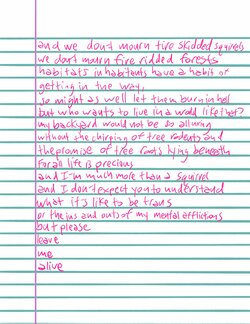 and we don't mourn tire skidded squirrels
we don't mourn fire ridded forests
habitats inhabitents have a habit of
getting in the way,
so might as well let them burn in hell
but who wants to live in a world like that?
my backyard would not be so alluring
without the chirping of tree rodents and
the promise of tree roots lying beneath
For all life is precious
and I'm much more than a squirrel
and I don't expect you to understand
what it's like to be trans
or the ins and outs of my mental afflictions
but please
leave
me
alive